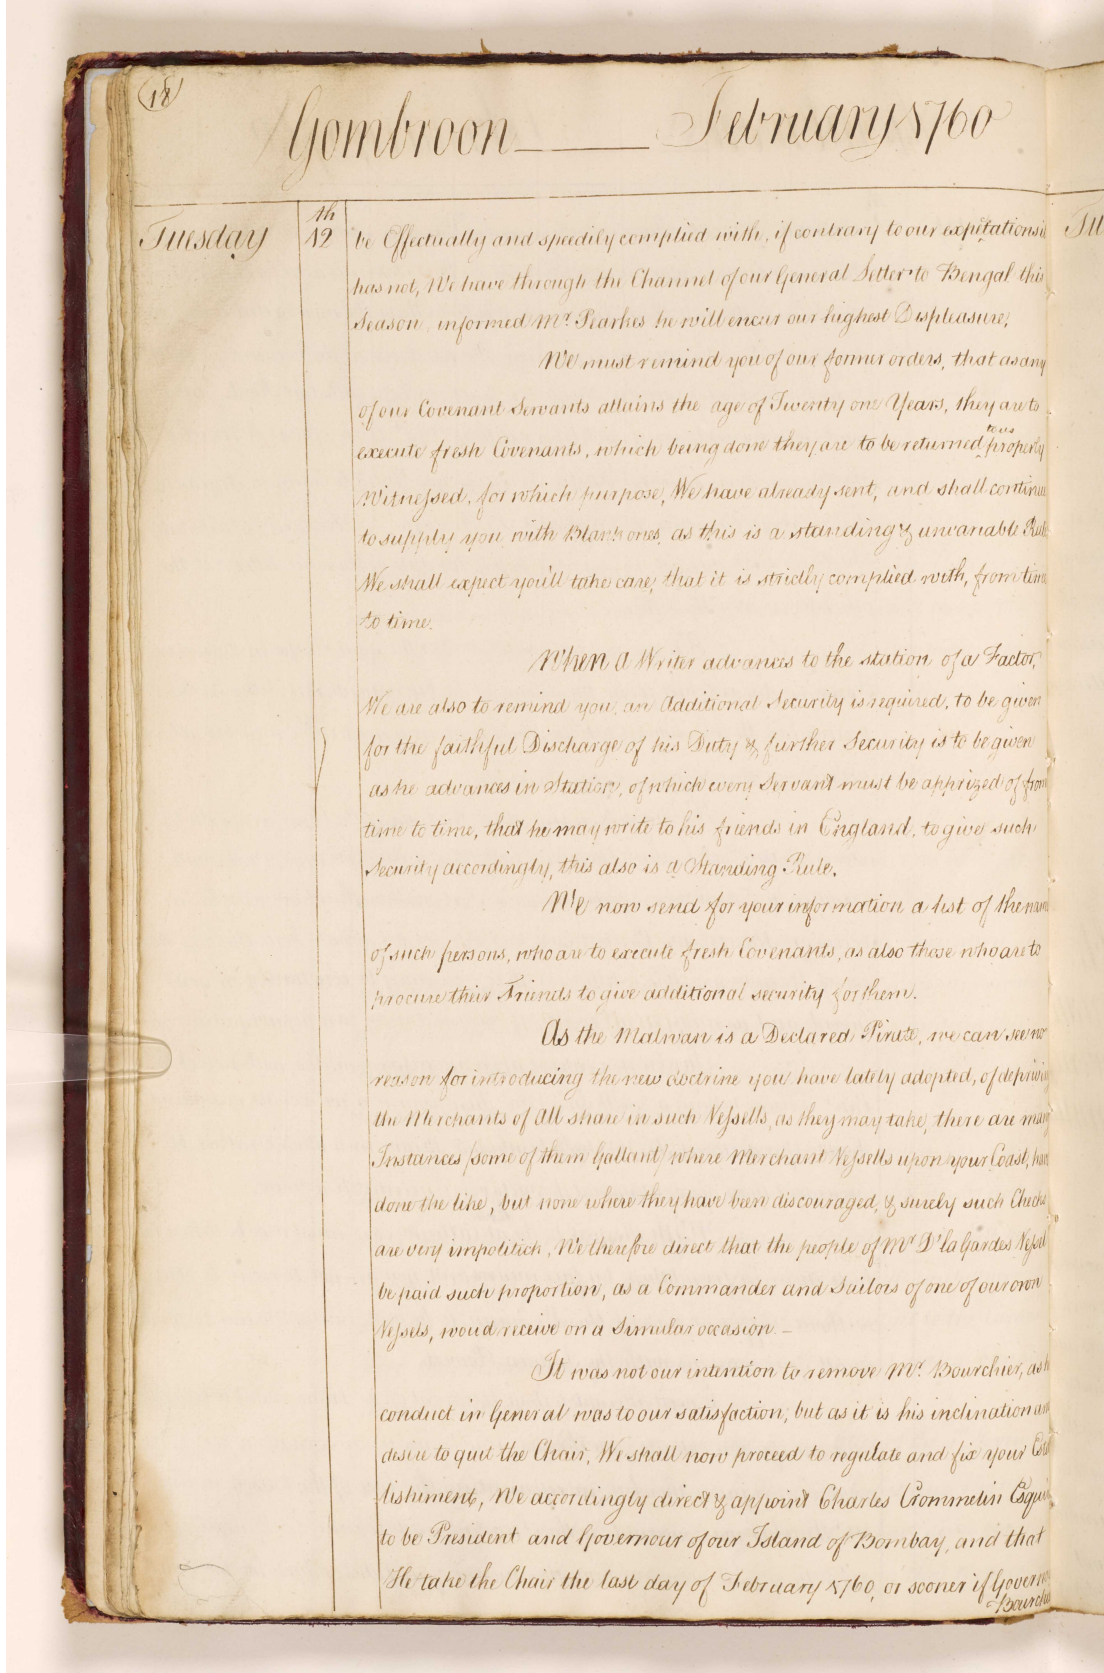 18
Gombroon February 1760
Tuesday 12th be Effectually and speedily complied with, if contrary to our expetations it
has not, We have through the Channel of our General Letter to Bengal this
Season, informed Mr. Pearkes he will encur our highest Displeasure.
We must remind you of our former orders, that as any
of our Covenant Servants attains the age of Twenty one Years, they are to
execute fresh Covenants, which being done they are to be returned to us properly
Witnessed, for which purpose, We have already sent, and shall continue
to supply you with Blank ones, as this is a standing & unvariable Rule
We shall expect you'll take care, that it is strictly complied with, from time
to time.
When a Writer advances to the station of a Factor,
We are also to remind you, an Additional Security is required, to be given
for the faithful Discharge of his Duty & further Security is to be given
as he advances in Station, of which every Servant must be apprized of from
time to time, that he may write to his friends in England, to give such
Security accordingly, this also is a Standing Rule.
We now send for your information a list of the
of such persons, who are to execute fresh Covenants, as also those who are to
procure their Friends to give additional security for them.
As the Malwan is a Declared Pirate, we can see no
reason for introducing the new doctrine you have lately adopted, of
the Merchants of All share in such Vessells, as they may take, there are many
Instances (some of them Gallant) where Merchant Vessells upon your Coast, have
done the like, but none where they have been discouraged, & surely such Checks
are very impolitick, We therefore direct that the people of Mr D'la Gardes Vessel
be paid such proportion, as a Commander and Sailors of one of our own
Vessels, woud receive on a Simular occasion. —
It was not our intention to remove Mr. Bourchier, as
conduct in General was to our satisfaction, but as it is his inclination and
desire to quit the Chair, We shall now proceed to regulate and fix your
lishiment, We accordingly direct & appoint Charles Crommelin
to be President and Governour of our Island of Bombay, and that
He take the Chair the last day of February 1760, or sooner if Governour